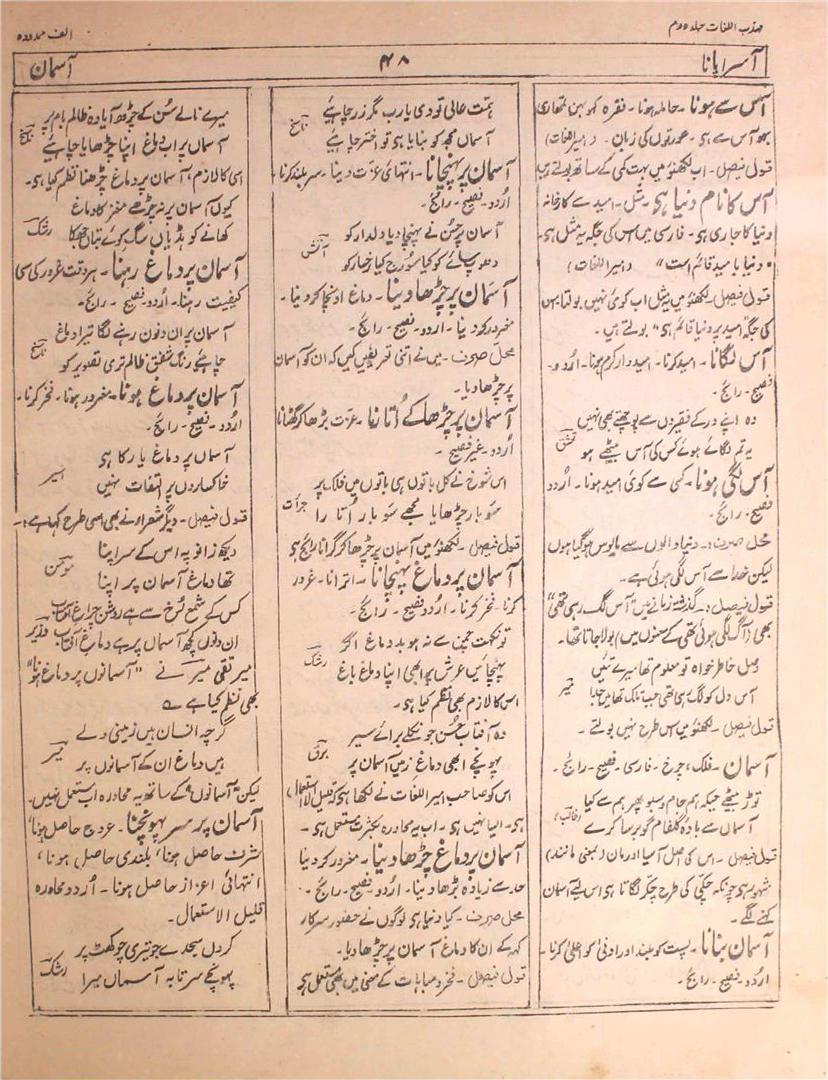 مہذب اللغات جلد دوم
الف ممدودہ
آسرا پانا
۴۸
آسمان
آس سے ہونا۔ حاملہ ہونا۔ فقرہ کہو بہن تمھاری
بہو آس سے ہی۔ عورتوں کی زبان۔ (امیر اللغات)
قول فیصل۔ اب لکھنؤ میں بہت کمی کے ساتھ بولتے ہیں
آس کا نام دنیا ہی۔ مثل۔ امید سے کارخانہ
دنیا کا جاری ہی۔ فارسی میں اس کی جگہ یہ مثل ہی۔
"دنیا بامید قائم است" (امیر اللغات)
قول فیصل۔ لکھنؤ میں یہ مثل اب کوئی نہیں بولتا بس
کی جگہ "امید پر دنیا قائم ہی" بولتے ہیں۔
آس لگانا۔ امید کرنا۔ امیدوار کرم ہونا۔ اردو۔
فصیح۔ رائج۔
وہ اپنے در کے فقیروں سے پوچھتے بھی نہیں
یہ تم لگائے ہوئے کس کی آس بیٹھے ہو تعشق
آس لگی ہونا۔ کسی سے کوئی امید ہونا۔ اردو
فصیح۔ رائج۔
محل صرف:۔ دنیا والوں سے مایوس ہو گیا ہوں
لیکن خدا سے آس لگی ہوئی ہے۔
قول فیصل:۔ گذشتہ زمانے میں "آس لگ رہی تھی"
بھی (آس لگی ہوئی تھی کے معنوں میں) بولا جاتا تھا۔
وصل خاطر خواہ تو معلوم تھا میرے تئیں
آس دل کو لگ رہی تھی جب تلک تھا میں جدا میر
قول فیصل۔ لکھنؤ میں اس طرح نہیں بولتے۔
آسمان۔ فلک، چرخ۔ فارسی۔ فصیح۔ رائج۔
توڑ بیٹھے جبکہ ہم جام و سبو پھر ہم سے کیا
آسماں سے بادۂ گلفام گو برسا کرے (غالب)
قول فیصل۔ اس کی اصل آسیا اور مان (بمعنی مانند)
مشہور ہی چونکہ چکی کی طرح چکر لگاتا ہی اس لیے آسمان
کہنے لگے۔
آسمان بنانا۔ پست کو بلند اور ادنیٰ کو اعلیٰ کرنا۔
اردو۔ فصیح۔ رائج۔
ہمت عالی تو دی یا رب مگر زر چاہیے
آسماں مجھ کو بنایا ہی تو اختر چاہیے ناسخ
آسمان پر پہنچانا۔ انتہائی عزت دینا۔ سربلند کرنا۔
اردو۔ فصیح۔ رائج۔
آسمان پر حسن نے پہنچا دیا دلدار کو
دھوپ کے کو کیا سورج کیا رخسار کو آتش
آسمان پر چڑھا دینا۔ دماغ اونچا کر دینا۔
مغرور کر دینا۔ اردو۔ فصیح۔ رائج۔
محل صرف۔ میں نے اتنی تعریفیں کیں کہ ان کو آسمان
پر چڑھا دیا۔
آسمان پر چڑھا کے اتارنا۔ عزت بڑھا کر گھٹانا
اردو۔ غیر فصیح۔
اس شوخ نے کل باتوں ہی باتوں میں فلک پر
سو بار چڑھایا مجھے سو بار اتارا جرأت
قول فیصل۔ لکھنؤ میں آسمان پر چڑھا کر گرانا رائج ہی
آسمان پر دماغ پہنچانا۔ اترانا۔ غرور
کرنا۔ فخر کرنا۔ اردو فصیح۔ رائج۔
تو نکہت چمن سے نہ ہو بد دماغ اگر
پہنچائیں عرش پر ابھی اپنا دماغ باغ رشک
اس کا لازم بھی نظم کیا ہی۔
وہ آفتاب حسن جو نکلے برائے سیر
پہونچے ابھی دماغ زمیں آسمان پر برق
اس کو صاحب امیر اللغات نے لکھا ہی کہ قلیل الاستعمال
ہی۔ ایسا نہیں ہی۔ اب یہ محاورہ بکثرت مستعمل ہی۔
آسمان پر دماغ چڑھا دینا۔ مغرور کر دینا
حد سے زیادہ بڑھا دینا۔ اردو۔ فصیح۔ رائج۔
محل صرف۔ کیا دنیا ہی لوگوں نے حضور سرکار
کہہ کے ان کا دماغ آسمان پر چڑھا دیا۔
قول فیصل۔ فخر و مباہات کے معنی میں بھی مستعمل ہی
میرے نالے سن کے چڑھ آیا وہ ظالم بام پر
آسماں پر اب دماغ اپنا چڑھایا چاہیے ناسخ
اسی کا لازم، آسمان پر دماغ چڑھنا نظم کیا ہی۔
کیوں آسمان پر نہ چڑھے مغز کا دماغ
کھانے کو ہڈیاں سگ کوئے بتاں رشک
آسمان پر دماغ رہنا۔ ہر وقت غرور کی سی
کیفیت رہنا۔ اردو۔ فصیح۔ رائج۔
آسماں پر ان دنوں رہنے لگا تیرا دماغ
چاہیے رنگ شفق ظالم تری تصویر کو ناسخ
آسمان پر دماغ ہونا۔ مغرور ہونا۔ فخر کرنا۔
اردو۔ فصیح۔ رائج۔
آسماں پر دماغ یار کا ہی
خاکساروں پر التفات نہیں اسیر
قول فیصل۔ دیگر شعراء نے بھی اسی طرح کہا ہے:۔
دیکھ زانو پہ اس کے سر اپنا
تھا دماغ آسمان پر اپنا مومن
کس کے شمع رخ سے ہے روشن چراغ آفتاب
ان دنوں کچھ آسماں پر ہے دماغ آفتاب وزیر
میر تقی میر نے "آسمانوں پر دماغ ہونا"
بھی نظم کیا ہے
گرچہ انسان ہیں زمیں ولے
ہیں دماغ ان کے آسمانوں پر میر
لیکن "آسمانوں" کے ساتھ یہ محاورہ اب مستعمل نہیں۔
آسمان پر سر پہونچنا۔ عروج حاصل ہونا،
شرف حاصل ہونا، بلندی حاصل ہونا،
انتہائی اعزاز حاصل ہونا۔ اردو محاورہ
قلیل الاستعمال۔
کر دل سجدے جو تیری چوکھٹ پر
پہونچے سر تا بہ آسماں میرا رشک